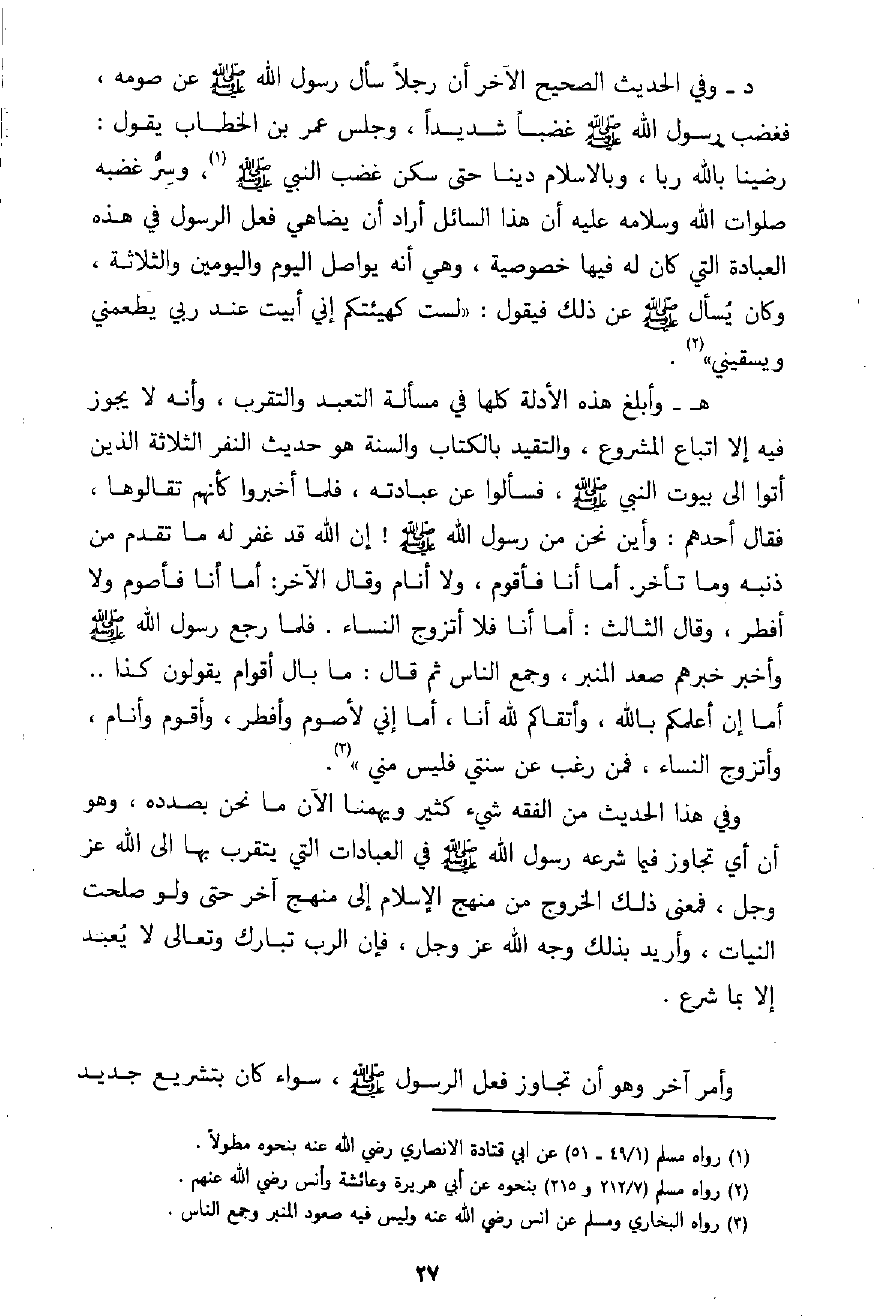 د ـ وفي الحديث الصحيح الآخر أن رجلاً سأل رسول الله ﷺ عن صومه ،
فغضب رسول الله ﷺ غضبـاً شديداً ، وجلس عمر بن الخطاب يقول :
رضينا بالله ربا ، وبالاسلام دينا حتى سكن غضب النبي ﷺ (١)، وسِرُّ غضبه
صلوات الله وسلامه عليه أن هذا السائل أراد أن يضاهي فعل الرسول في هذه
العبادة التي كان له فيها خصوصية ، وهي أنه يواصل اليوم واليومين والثلاثة ،
وكان يُسأل ﷺ عن ذلك فيقول : «لست كهيئتكم إني أبيت عند ربي يطعمني
ويسقيني» (٢) .
هـ ـ وأبلغ هذه الأدلة كلها في مسألة التعبد والتقرب ، وأنه لا يجوز
فيه إلا اتباع المشروع ، والتقيد بالكتاب والسنة هو حديث النفر الثلاثة الذين
أتوا الى بيوت النبي ﷺ ، فسألوا عن عبادته ، فلما أخبروا كأنهم تقالوها ،
فقال أحدهم : وأين نحن من رسول الله ﷺ ! إن الله قد غفر له ما تقدم من
ذنبه وما تأخر. أما أنا فأقوم ، ولا أنام وقال الآخر: أما أنا فأصوم ولا
أفطر ، وقال الثالث : أما أنا فلا أتزوج النساء . فلما رجع رسول الله ﷺ
وأخبر خبرهم صعد المنبر ، وجمع الناس ثم قال : ما بال أقوام يقولون كذا ..
أما إن أعلمكم بالله ، وأتقاكم لله أنا ، أما إني لأصوم وأفطر ، وأقوم وأنام ،
وأتزوج النساء ، فمن رغب عن سنتي فليس مني » (٣).
وفي هذا الحديث من الفقه شيء كثير ويهمنا الآن ما نحن بصدده ، وهو
أن أي تجاوز فيما شرعه رسول الله ﷺ في العبادات التي يتقرب بها الى الله عز
وجل ، فمعنى ذلك الخروج من منهج الإسلام إلى منهج آخر حتى ولو صلحت
النيات ، وأريد بذلك وجه الله عز وجل ، فإن الرب تبارك وتعالى لا يُعبد
إلا بما شرع .
وأمر آخر وهو أن تجاوز فعل الرسول ﷺ ، سواء كان بتشريع جديد
(١) رواه مسلم (٤٩/١ ـ ٥١) عن ابي قتادة الانصاري رضي الله عنه بنحوه مطولاً .
(٢) رواه مسلم (٢١٢/٧ و ٢١٥) بنحوه عن أبي هريرة وعائشة وأنس رضي الله عنهم .
(٣) رواه البخاري ومسلم عن انس رضي الله عنه وليس فيه صعود المنبر وجمع الناس .
٢٧